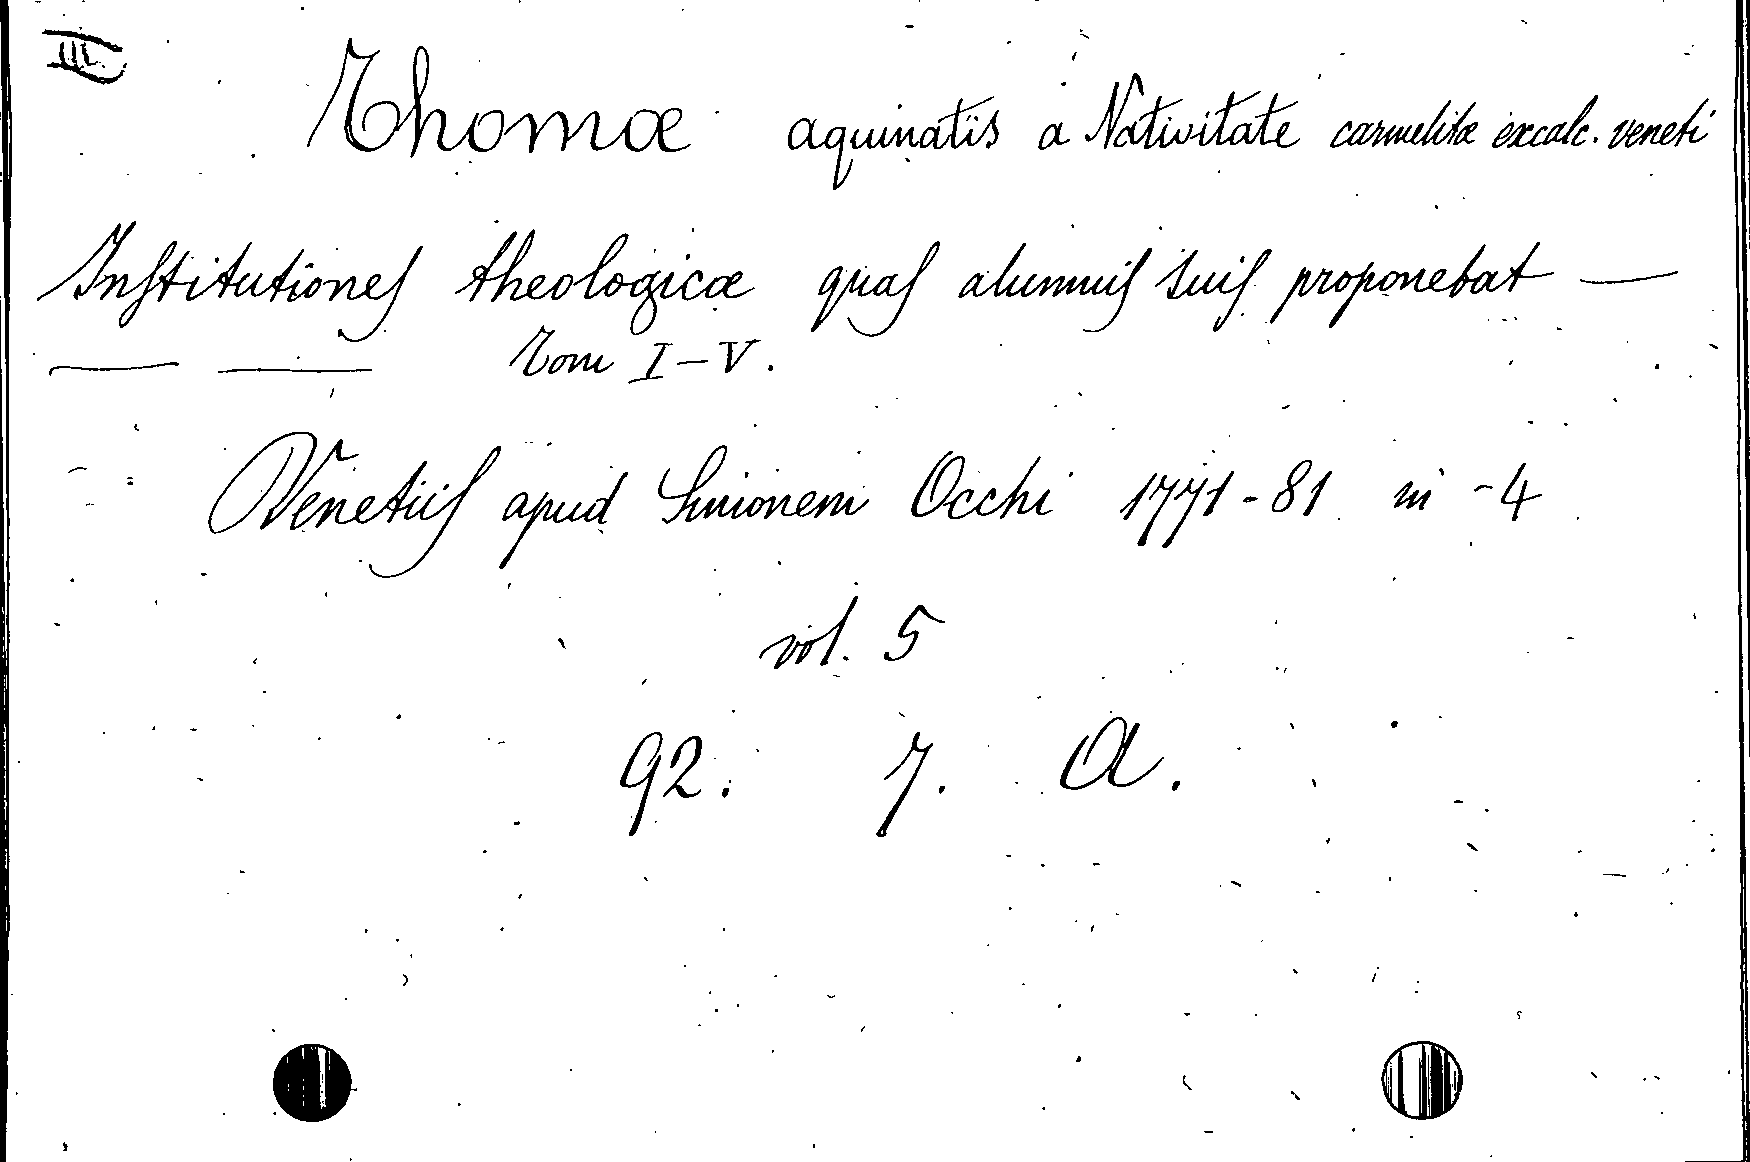 III.
Thomæ aquinatis a Nativitate carmelitæ excalc. veneti
Institutiones theologicæ quas alumnis suis proponebat —
— — Tom I–V.
Venetiis apud Simonem Occhi 1771-81 in -4
vol. 5
92. 7. A.